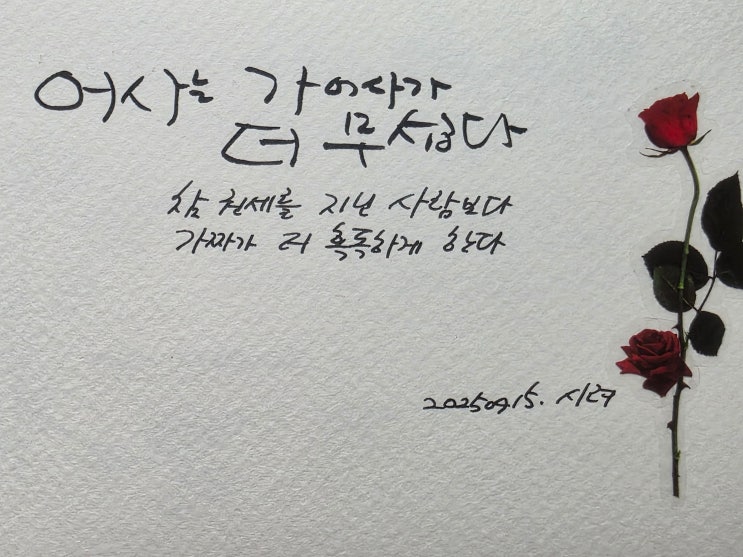 어사는 가어사가
더 무섭다
참 권세를 지닌 사람보다
가짜가 더 혹독하게 한다
20250915. 시려